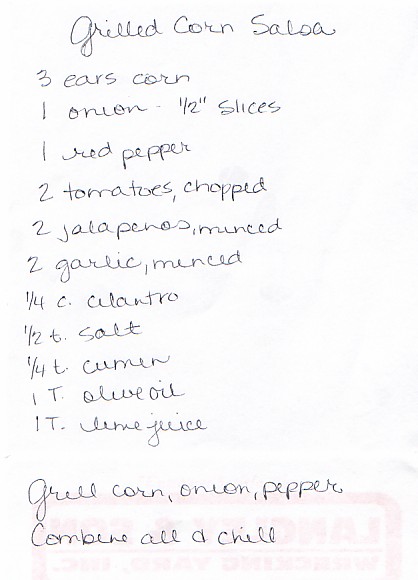 Grilled Corn Salsa
3 ears corn
1 onion - 1/2" slices
1 red pepper
2 tomatoes, chopped
2 jalapenos, minced
2 garlic, minced
1/4 c. cilantro
1/2 t. salt
1/4 t. cumen
1 T. olive oil
1 T. lime juice
Grill corn, onion, pepper
Combine all & chill
WRECKING YARD, INC.